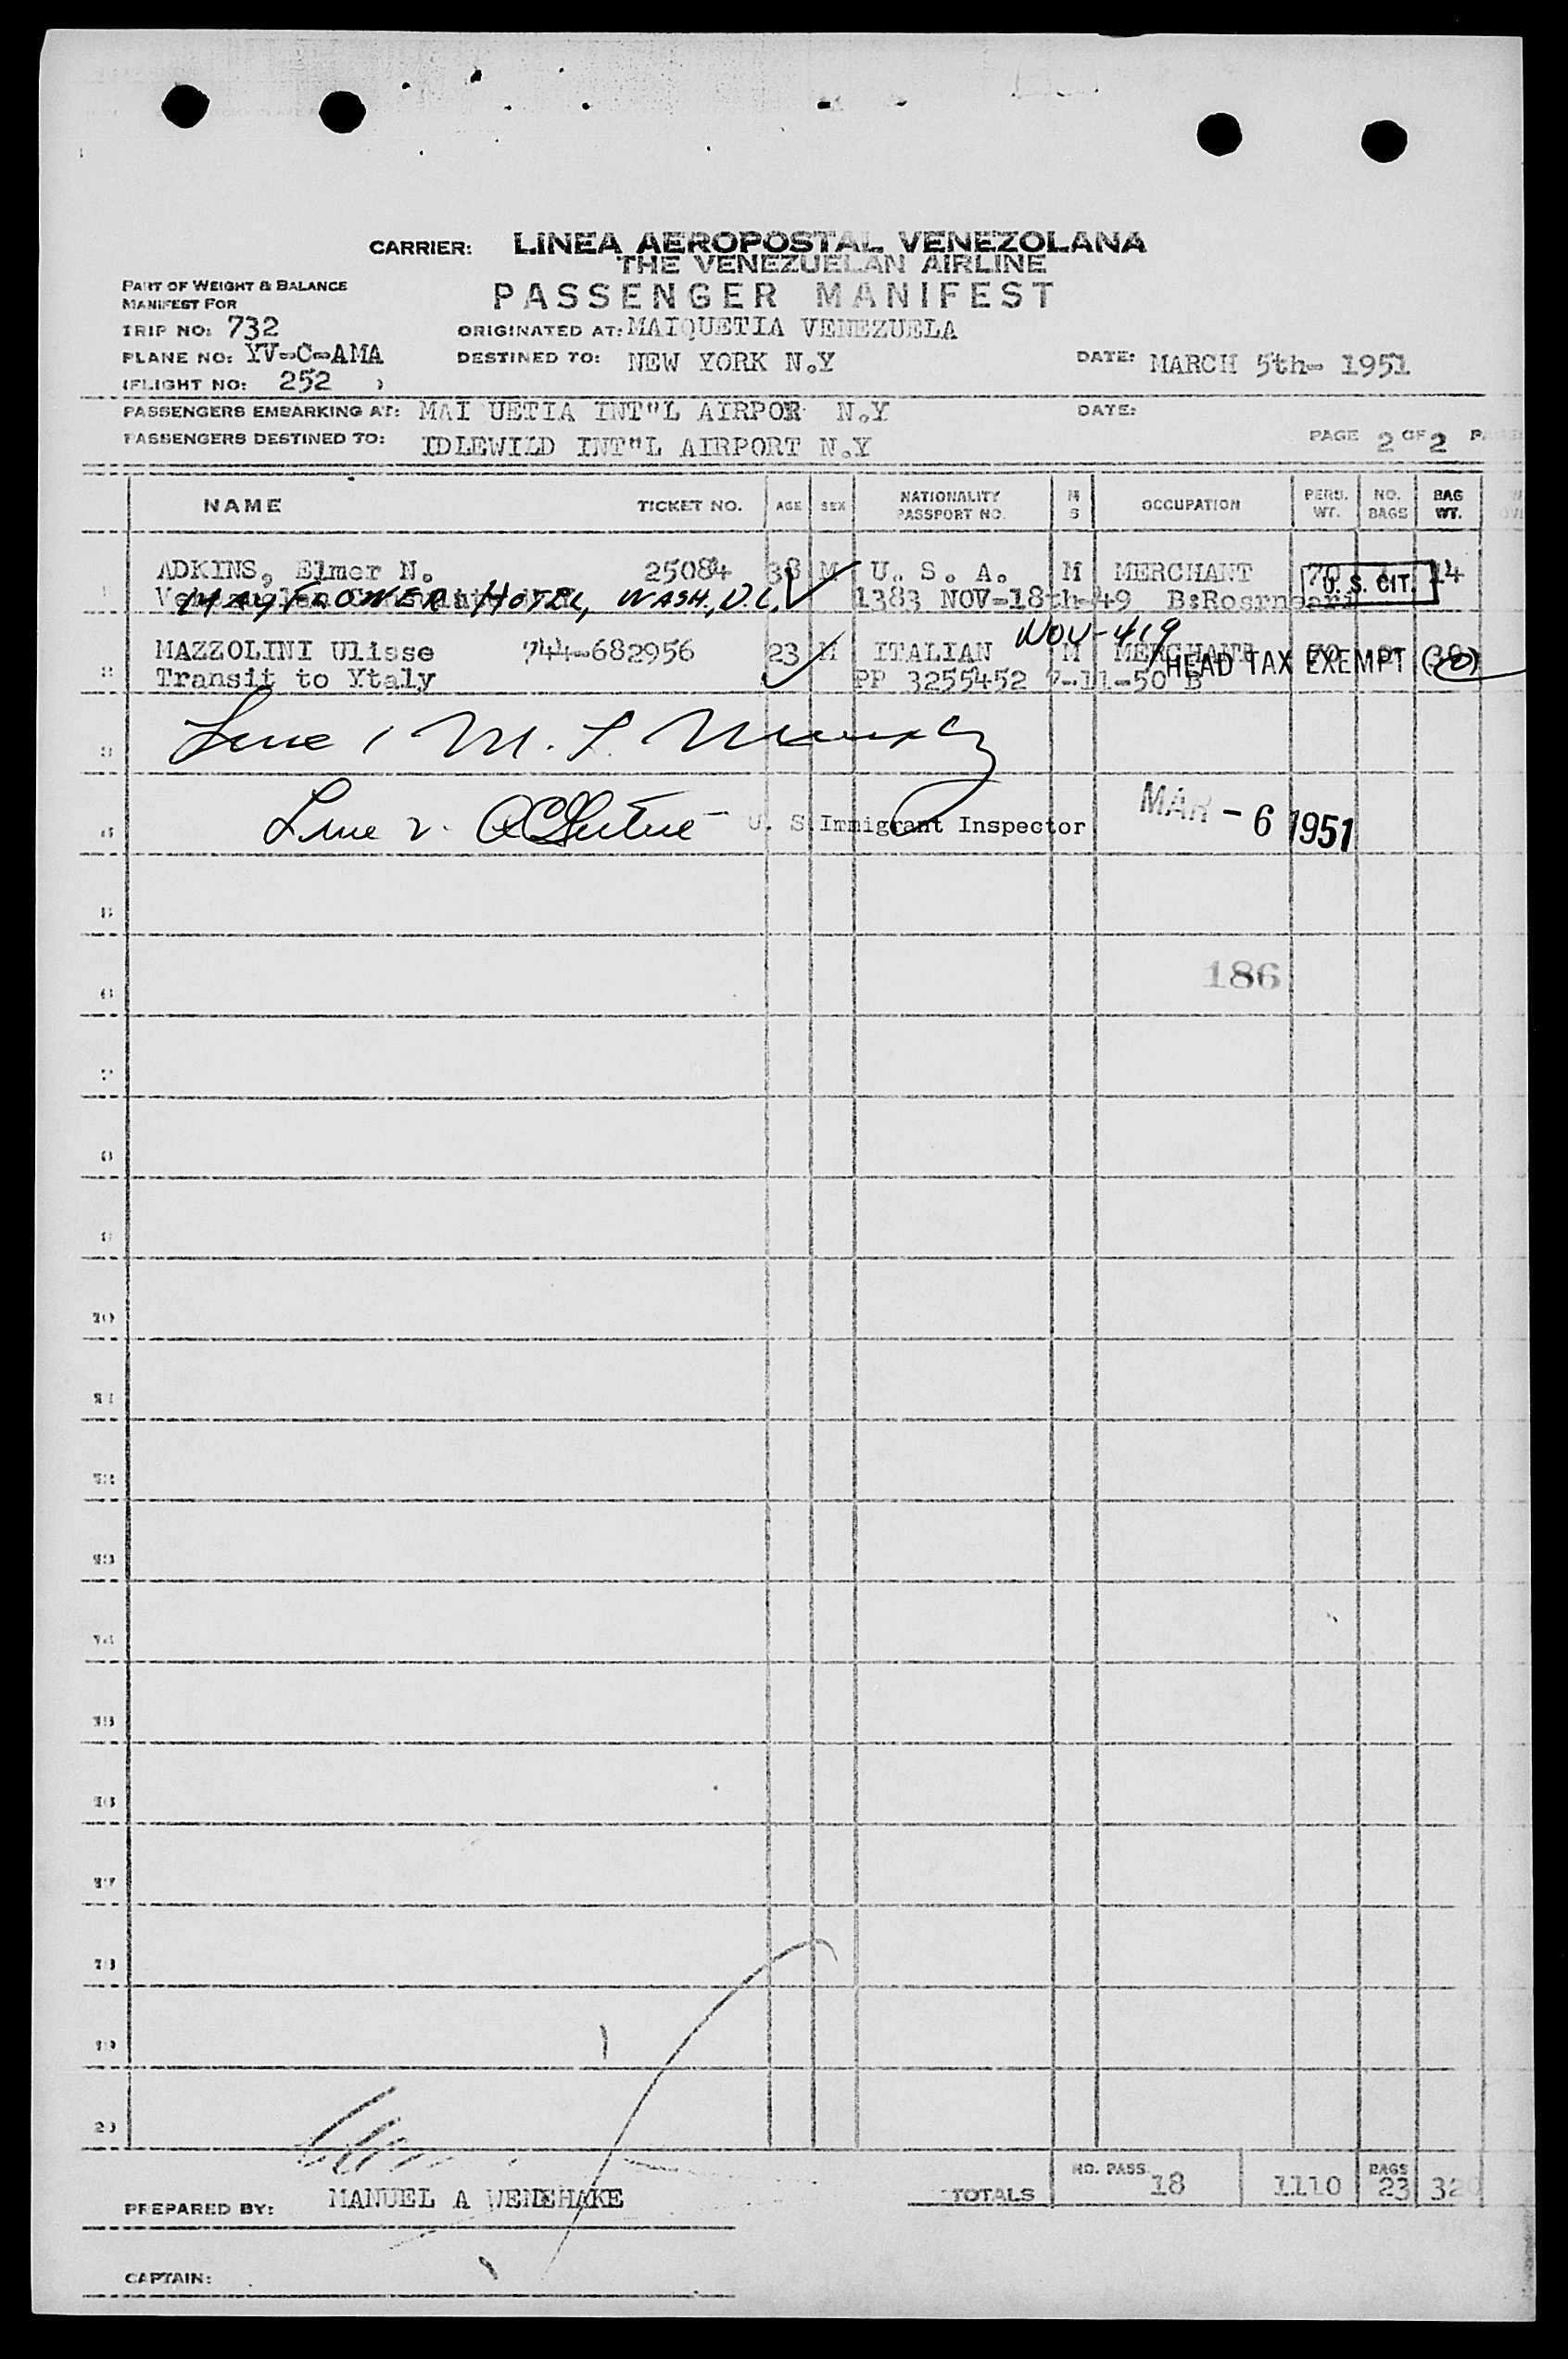 CARRIER: LINEA AEROPOSTAL VENEZOLANA
THE VENEZUELAN AIRLINE
PASSENGER MANIFEST
PART OF WEIGHT & BALANCE
MANIFEST FOR
TRIP NO: 732
ORIGINATED AT: MAIQUETIA VENEZUELA
PLANE NO: YV-C-AMA
DESTINED TO: NEW YORK N.Y
DATE: MARCH 5th- 1951
(FLIGHT NO: 252 )
PASSENGERS EMBARKING AT: MAI UETIA INT"L AIRPOR N.Y
DATE:
PASSENGERS DESTINED TO: IDLEWILD INT"L AIRPORT N.Y
PAGE 2 OF 2
NAME TICKET NO. AGE SEX NATIONALITY PASSPORT NO. M S OCCUPATION PERS. WT. NO. BAGS BAG WT.
1 ADKINS, Elmer N. 25084 38 M U. S. A. M MERCHANT 70 14
U.S. CIT.
MAYFLOWER HOTEL, WASH., D.C. 1383 NOV-18th-49
NOV-419
2 MAZZOLINI Ulisse 744-682956 23 M ITALIAN M MERCHANT
HEAD TAX EXEMPT
Transit to Ytaly PP 3255452 7-11-50 B
3 Line 1 M.
4 Line 2. U. S. Immigrant Inspector MAR - 6 1951
5
6 186
7
8
9
10
11
12
13
14
15
16
17
18
19
20
NO. PASS. 18 1110 BAGS 23
TOTALS
PREPARED BY: MANUEL A WENEHAKE
CAPTAIN: